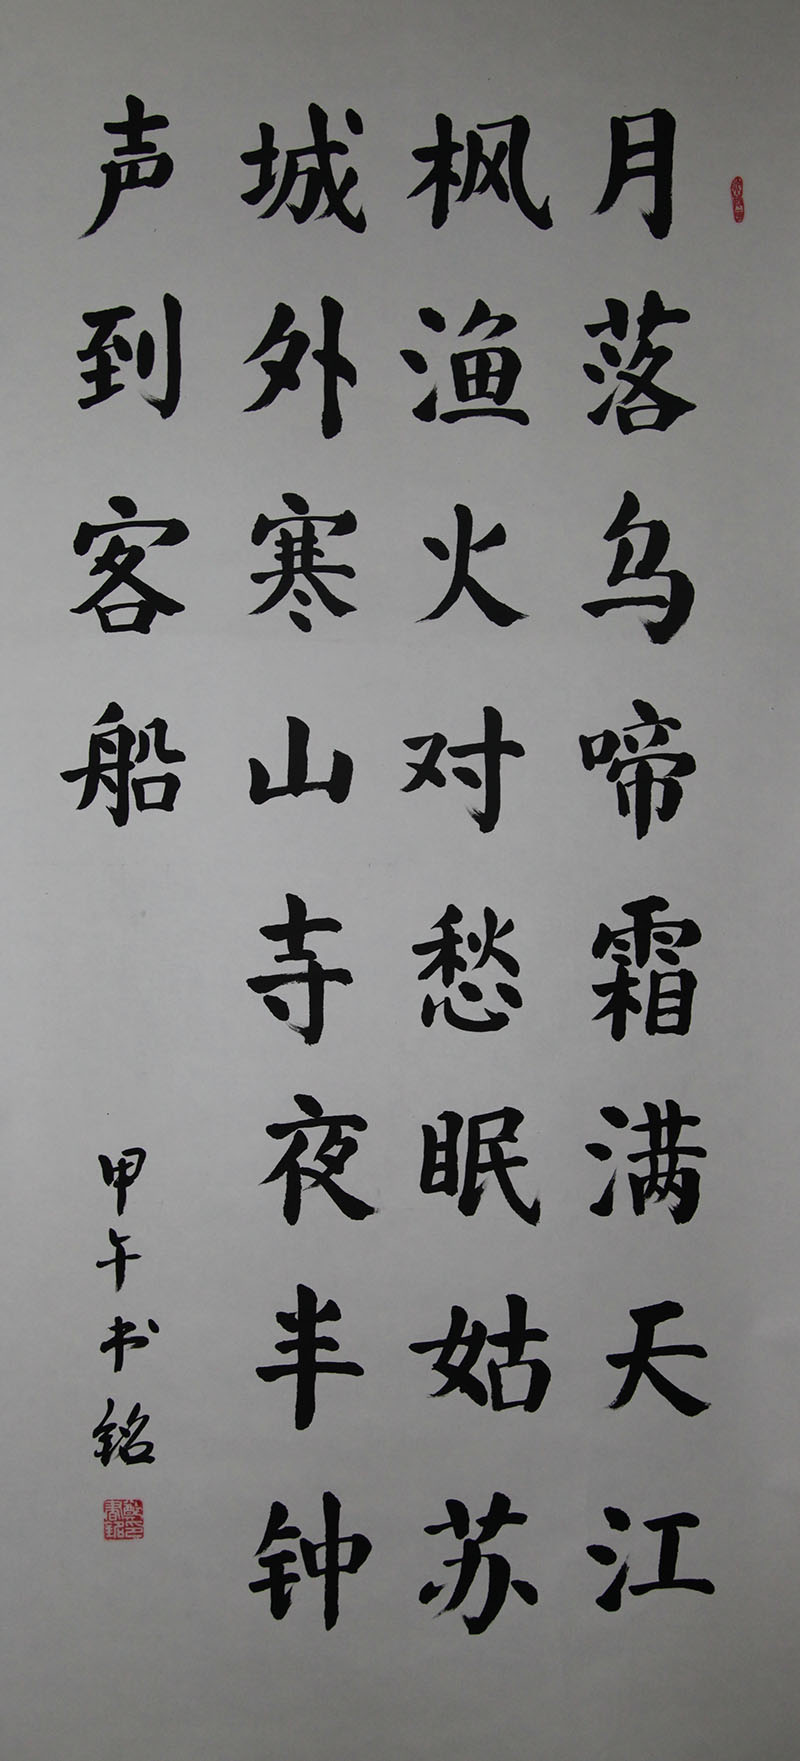 月落乌啼霜满天江
枫渔火对愁眠姑苏
城外寒山寺夜半钟
声到客船
甲午书铭